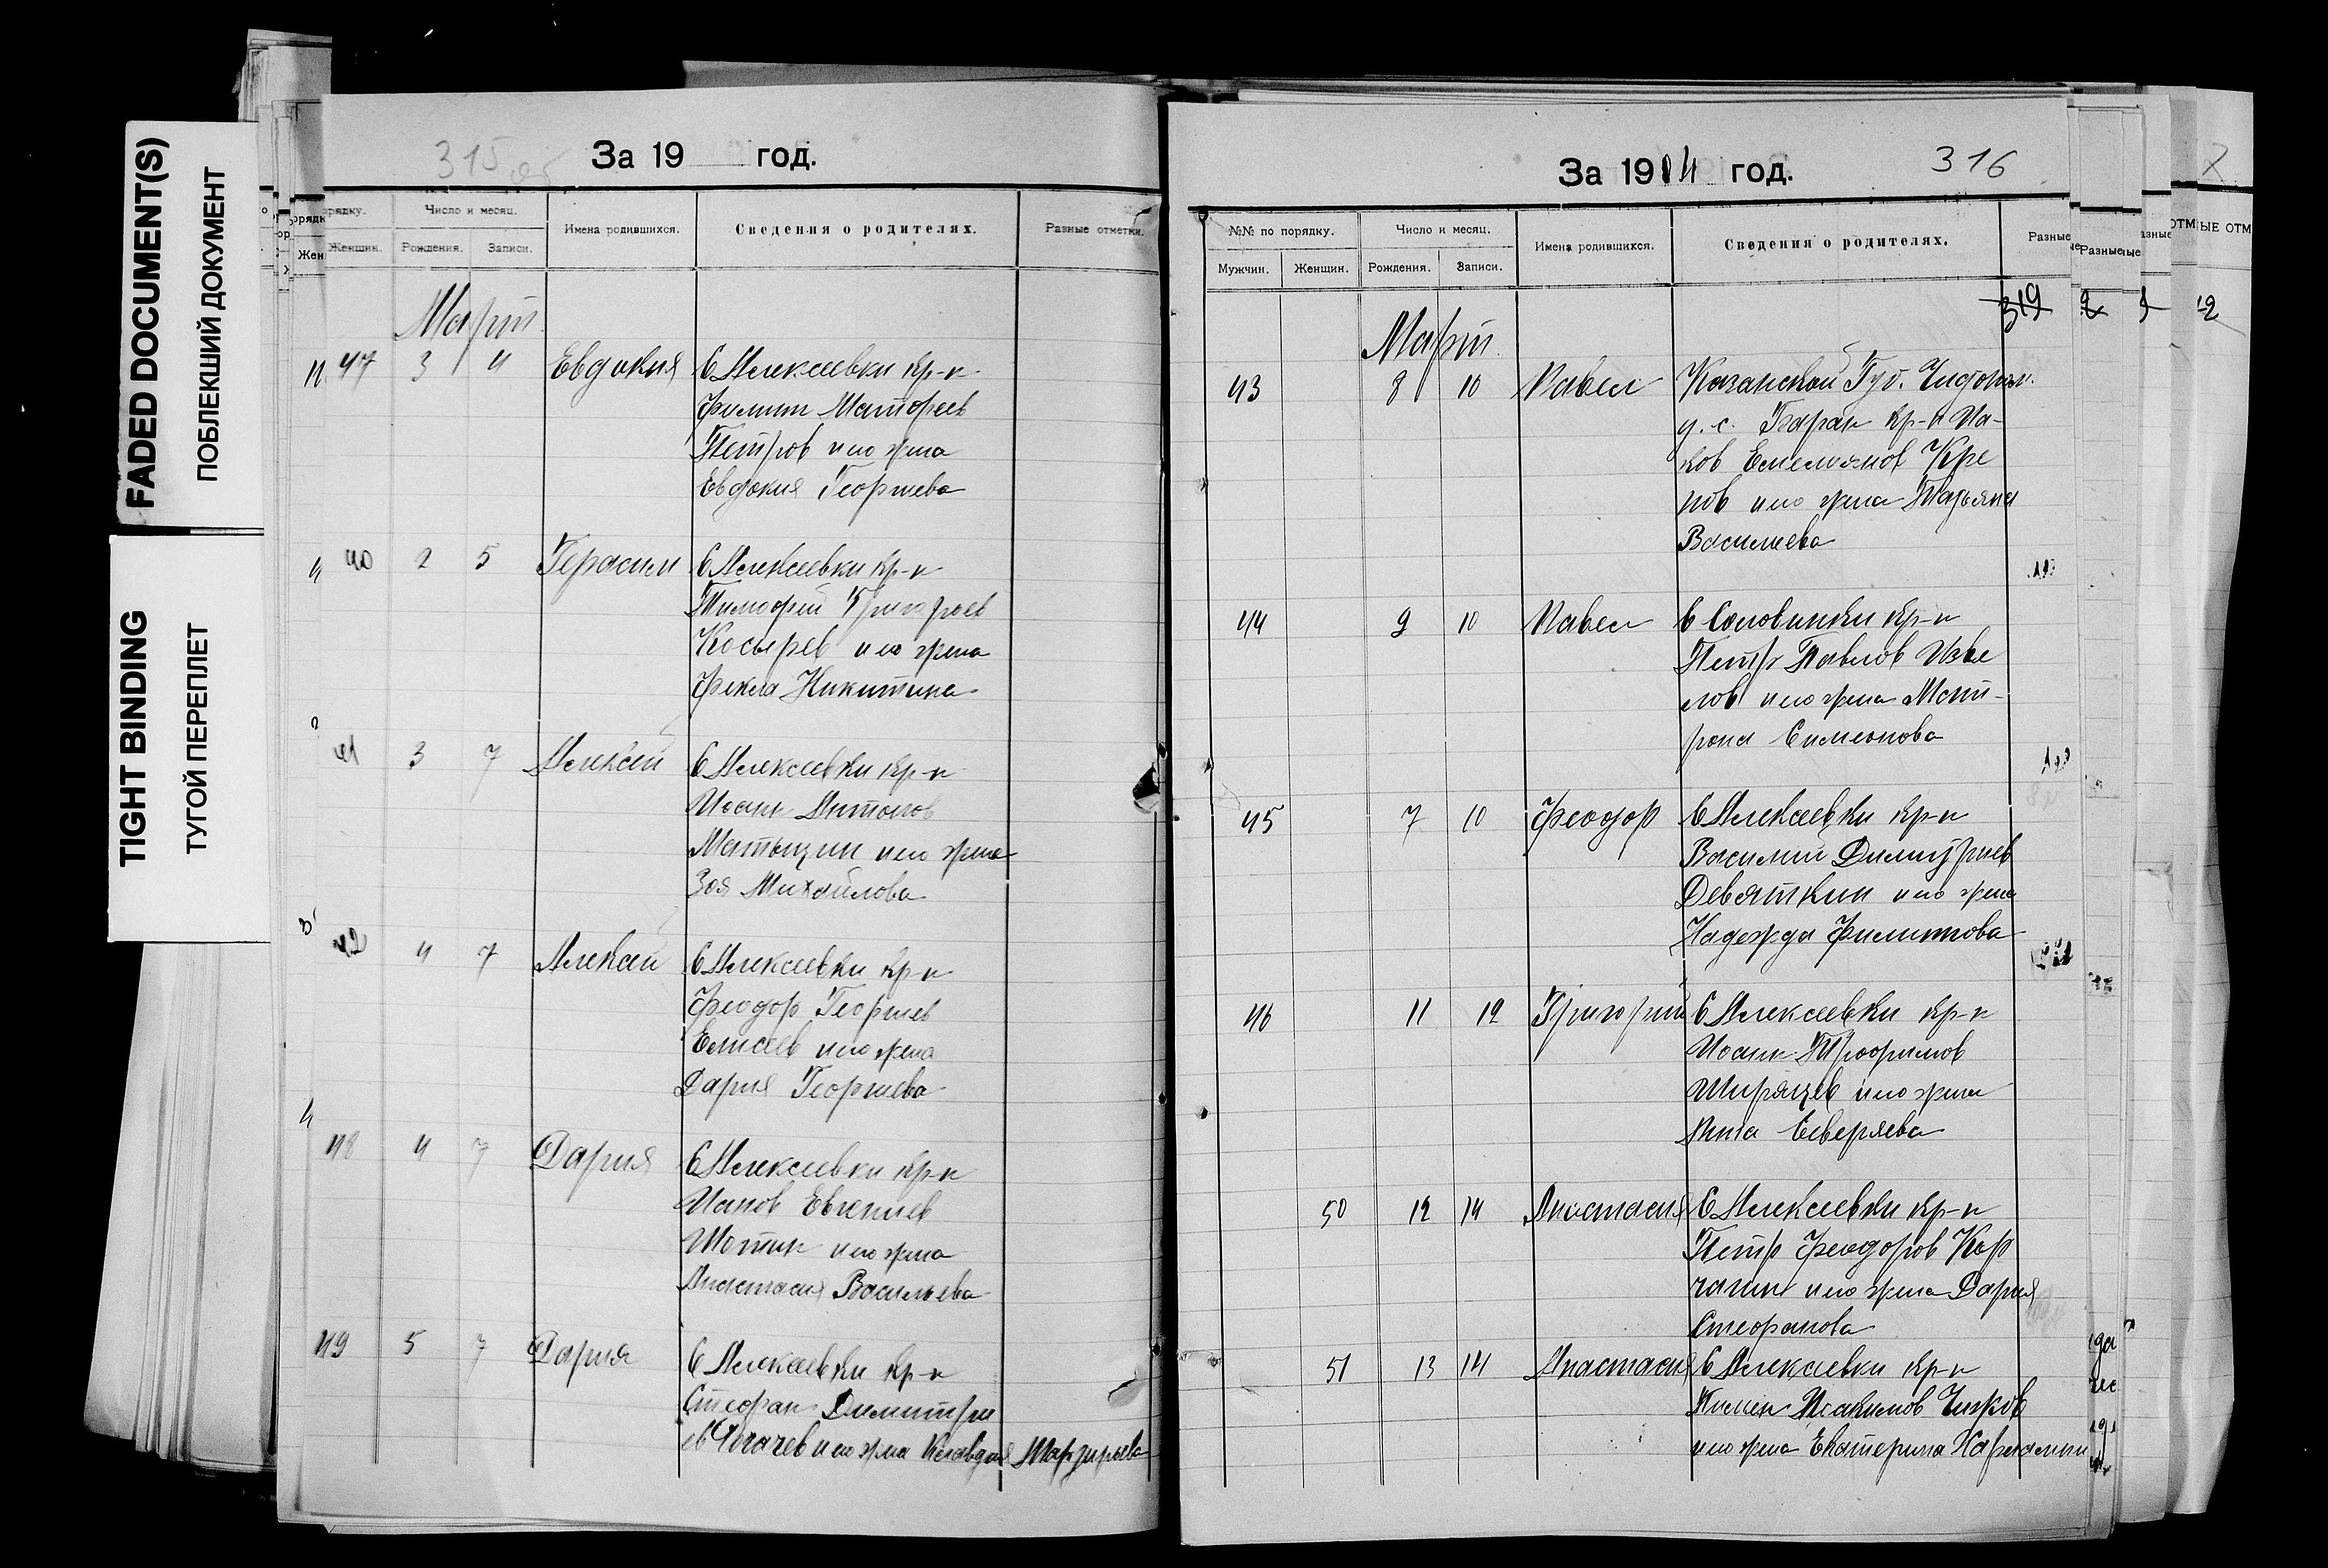 FADED DOCUMENT(S)
ПОБЛЕКШИЙ ДОКУМЕНТ
TIGHT BINDING
ТУГОЙ ПЕРЕПЛЕТ
315
За 19 год.
Женщин.
Число и месяц.
Рождения.
Записи.
Имена родившихся.
Сведения о родителях.
Разные отметки.
Март
47 3 4 Евдокия С Алексеевки кр-н
Филипп Матфеев
Петров и его жена
Евдокия Георгиева
40 2 5 Герасим С Алексеевки кр-н
Тимофей Григорьев
Косырев и его жена
Фекла Никитина
41 3 7 Алексей С Алексеевки кр-н
Иоанн Антонов
и его жена
Зоя Михайлова
42 4 7 Алексей С Алексеевки кр-н
Феодор Георгиев
Елисеев и его жена
Дария Георгиева
48 4 7 Дария С Алексеевки кр-н
Евгениев
Шотин и его жена
Анастасия Васильева
49 5 7 Дария С Алексеевки кр-н
Стефан Димитри
ев и его жена Клавдия
За 1914 год.
316
№№ по порядку.
Мужчин.
Женщин.
Число и месяц.
Рождения.
Записи.
Имена родившихся.
Сведения о родителях.
Разные
319
Март
43 8 10 Павел Казанской Губ.
у. с. кр-н Иа-
ков Емелианов Кре
пов и его жена Татьяна
Васильева
44 9 10 Павел С Соловинки кр-н
Петр Павлов Изве
лов и его жена Мат-
рона Симеонова
45 7 10 Феодор С Алексеевки кр-н
Василий Димитриев
Девяткин и его жена
Надежда Филиппова
46 11 12 Григорий С Алексеевки кр-н
Иоанн Трофимов
Ширяев и его жена
Анна
50 12 14 Анастасия С Алексеевки кр-н
Петр Феодоров Кор
чагин и его жена Дария
Стефанова
51 13 14 Анастасия С Алексеевки кр-н
Пимен Иоакимов
и его жена Екатерина